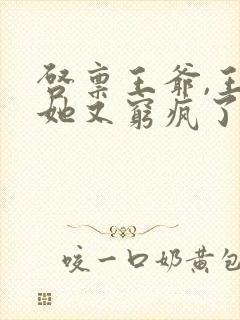 启禀王爷,王
她又穷疯了
咬一口奶黄包